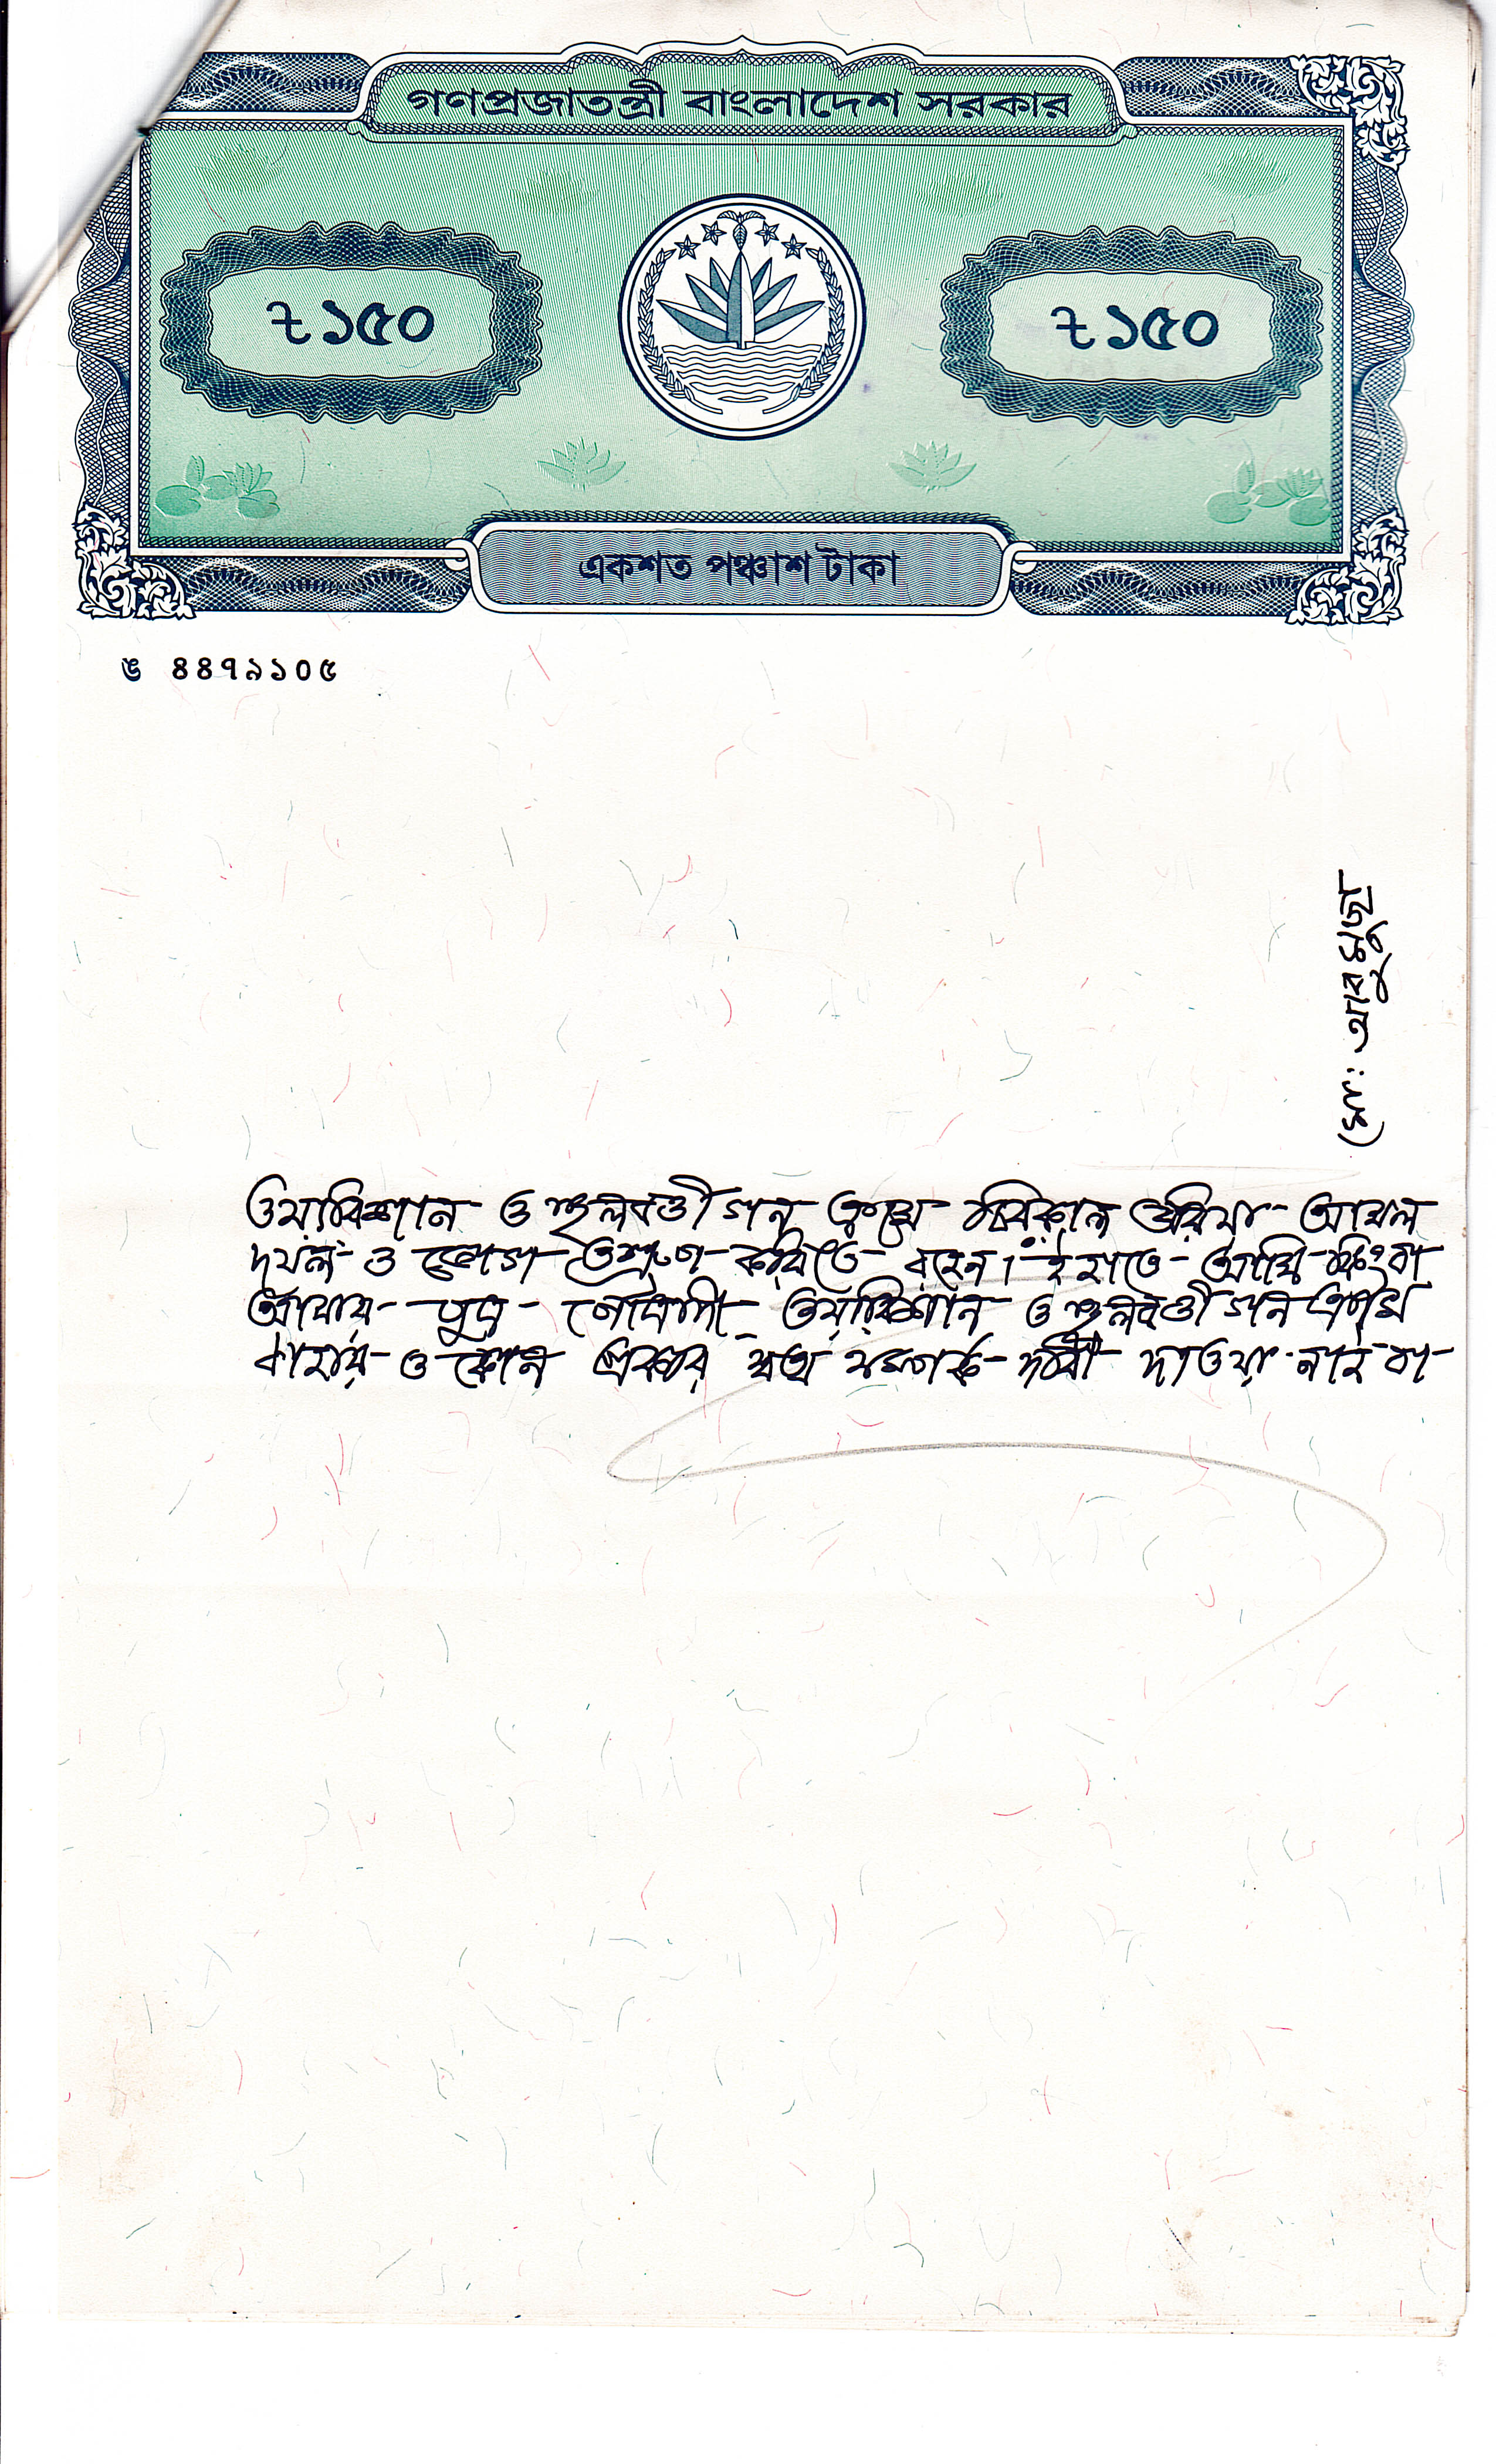 গণপ্রজাতন্ত্রী বাংলাদেশ সরকার
৳১৫০
৳১৫০
একশত পঞ্চাশ টাকা
ঙ ৪৪৭৯১০৫
মো: আবু মুছা
ওয়ারিশান ও স্থলবর্ত্তী গন ক্রমে চিরকাল ধরিয়া আমল
দখল ও ভোগ তশ্রুপ করিতে রহেন। ইহাতে আমি কিংবা
আমার পুত্র পৌত্রাদী ওয়ারিশান ও স্থলবর্ত্তী গন ক্রমে
কাহার ও কোন প্রকার স্বত্ব সম্পর্ক দাবী দাওয়া নাই বা